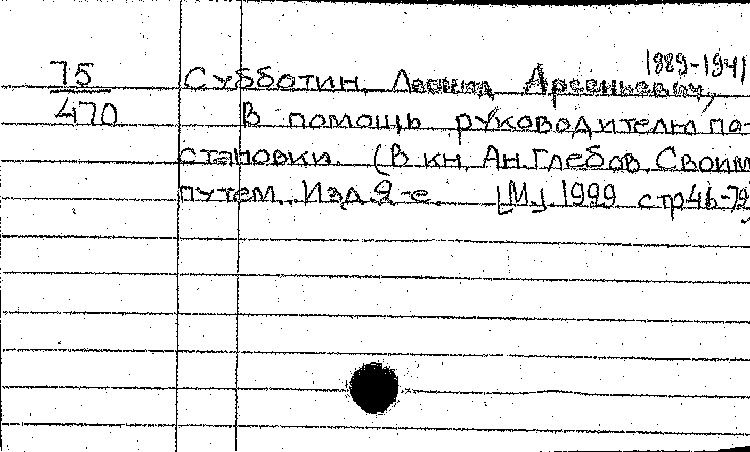 1889-1941
75
470
Субботин, Леонид Арсеньевич,
В помощь руководителю по-
становки. (В кн. Ан. Глебов. Своим
путем. Изд. 2-е. [М.] 1999 стр 46-79